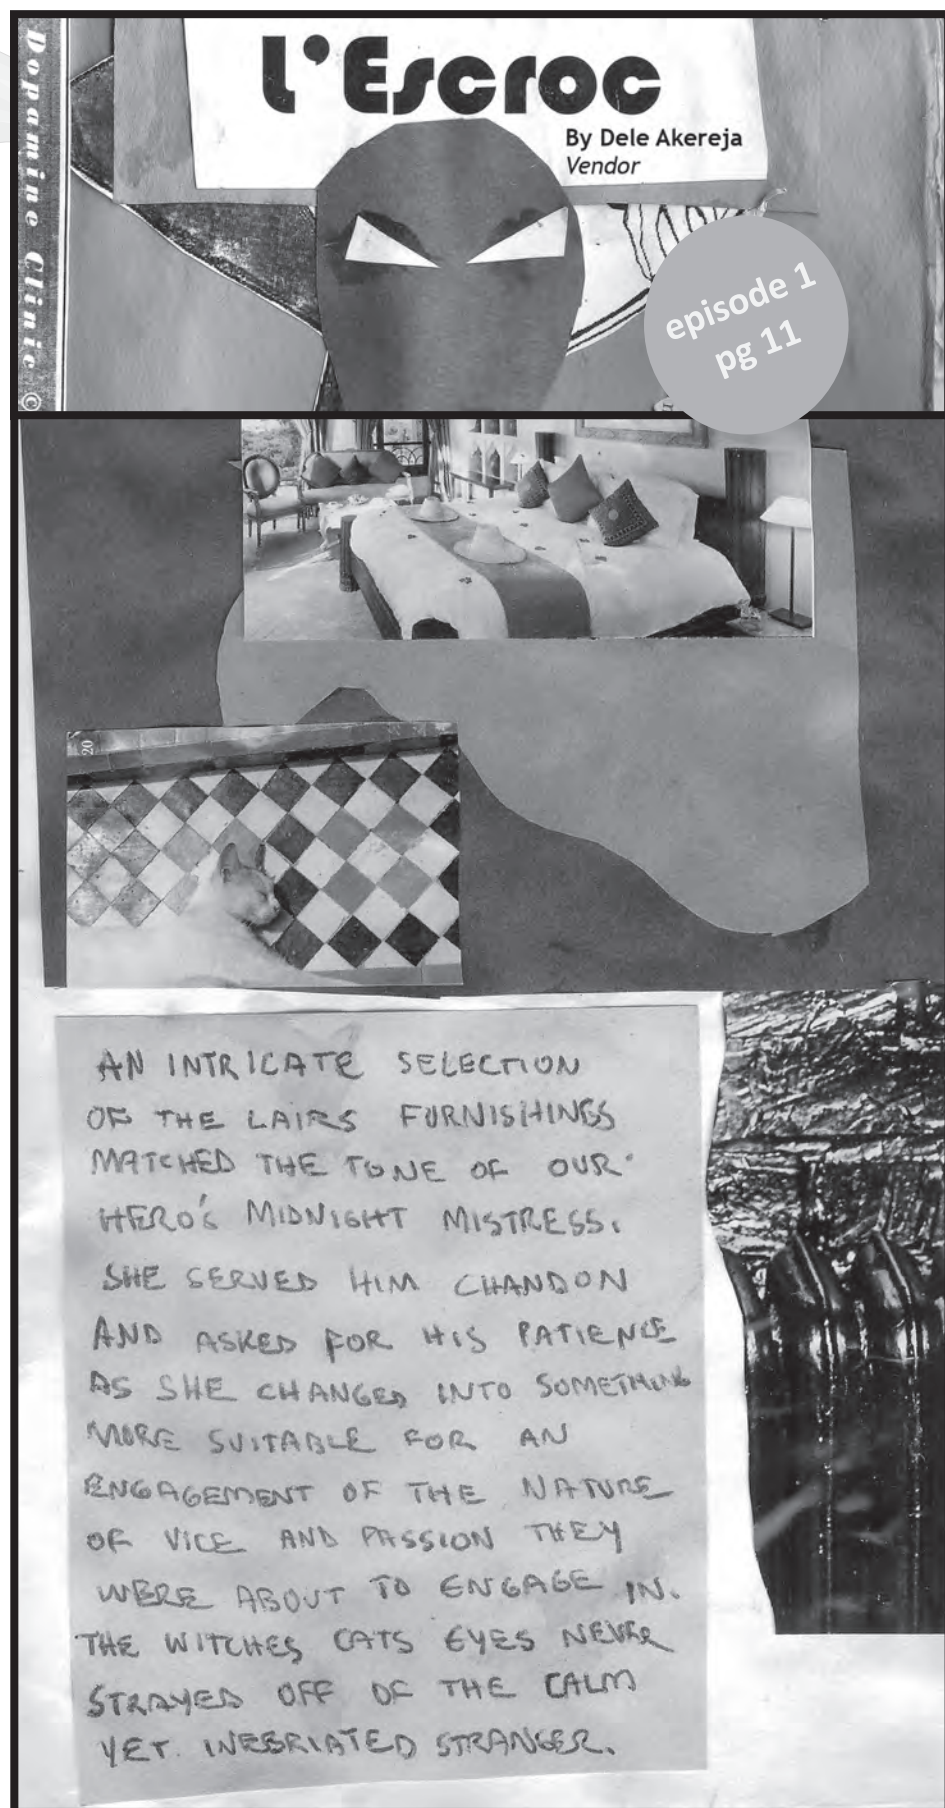 Dopamine Clinic ©
L'Escroc
By Dele Akereja
Vendor
episode 1
pg 11
20
AN INTRICATE SELECTION
OF THE LAIRS FURNISHINGS
MATCHED THE TONE OF OUR
HERO'S MIDNIGHT MISTRESS.
SHE SERVED HIM CHANDON
AND ASKED FOR HIS PATIENCE
AS SHE CHANGED INTO SOMETHING
MORE SUITABLE FOR AN
ENGAGEMENT OF THE NATURE
OF VICE AND PASSION THEY
WERE ABOUT TO ENGAGE IN.
THE WITCHES CATS EYES NEVER
STRAYED OFF OF THE CALM
YET INEBRIATED STRANGER.